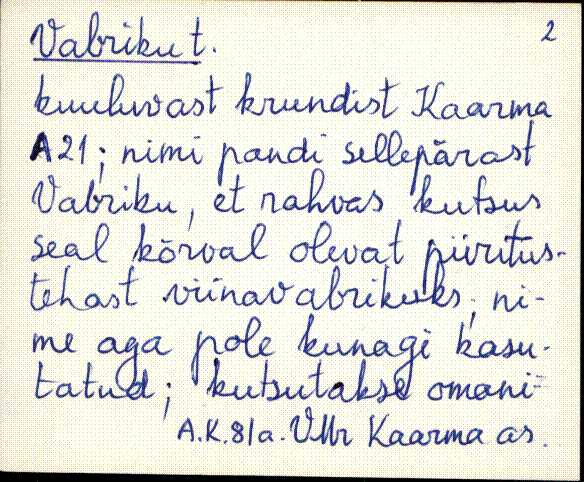 Vabriku t. 2
kuuluvast krundist Kaarma
A21; nimi pandi sellepärast
Vabriku, et rahvas kutsus
seal kõrval olevat piiritus-
tehast viinavabrikuks; ni-
me aga pole kunagi kasu-
tatud; kutsutakse omani-
A.K.8/a. VMr Kaarma as.